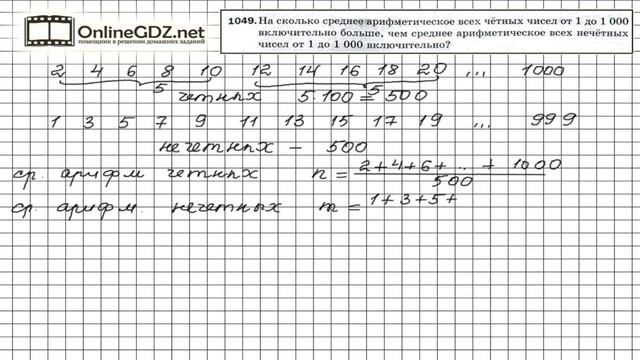 OnlineGDZ.net
помощник в решении домашних заданий
1049. На сколько среднее арифметическое всех чётных чисел от 1 до 1 000
включительно больше, чем среднее арифметическое всех нечётных
чисел от 1 до 1 000 включительно?
2 4 6 8 10 12 14 16 18 20 ... 1000
5 5
четных 5·100 = 500
1 3 5 7 9 11 13 15 17 19 ... 999
нечетных – 500
ср. арифм четных n = 2+4+6+...+1000
500
ср. арифм. нечетных m = 1+3+5+